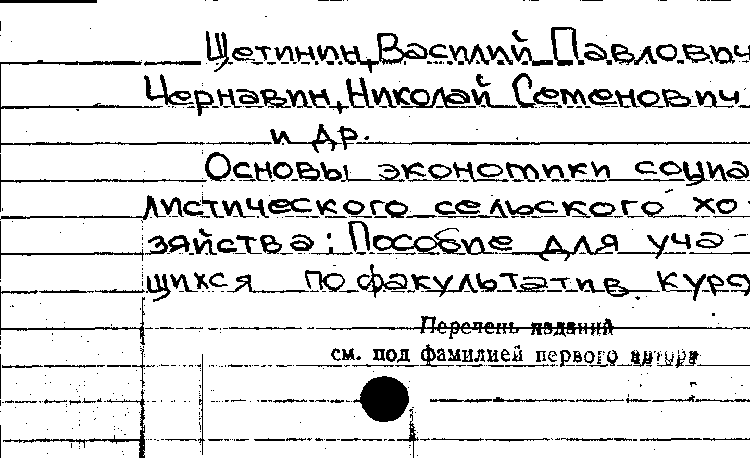 Щетинин, Василий Павлович
Чернавин, Николай Семенович
и др.
Основы экономики социа
листического сельского хо-
зяйства: Пособие для уча-
щихся по факультатив. курс
Перечень изданий
см. под фамилией первого автора